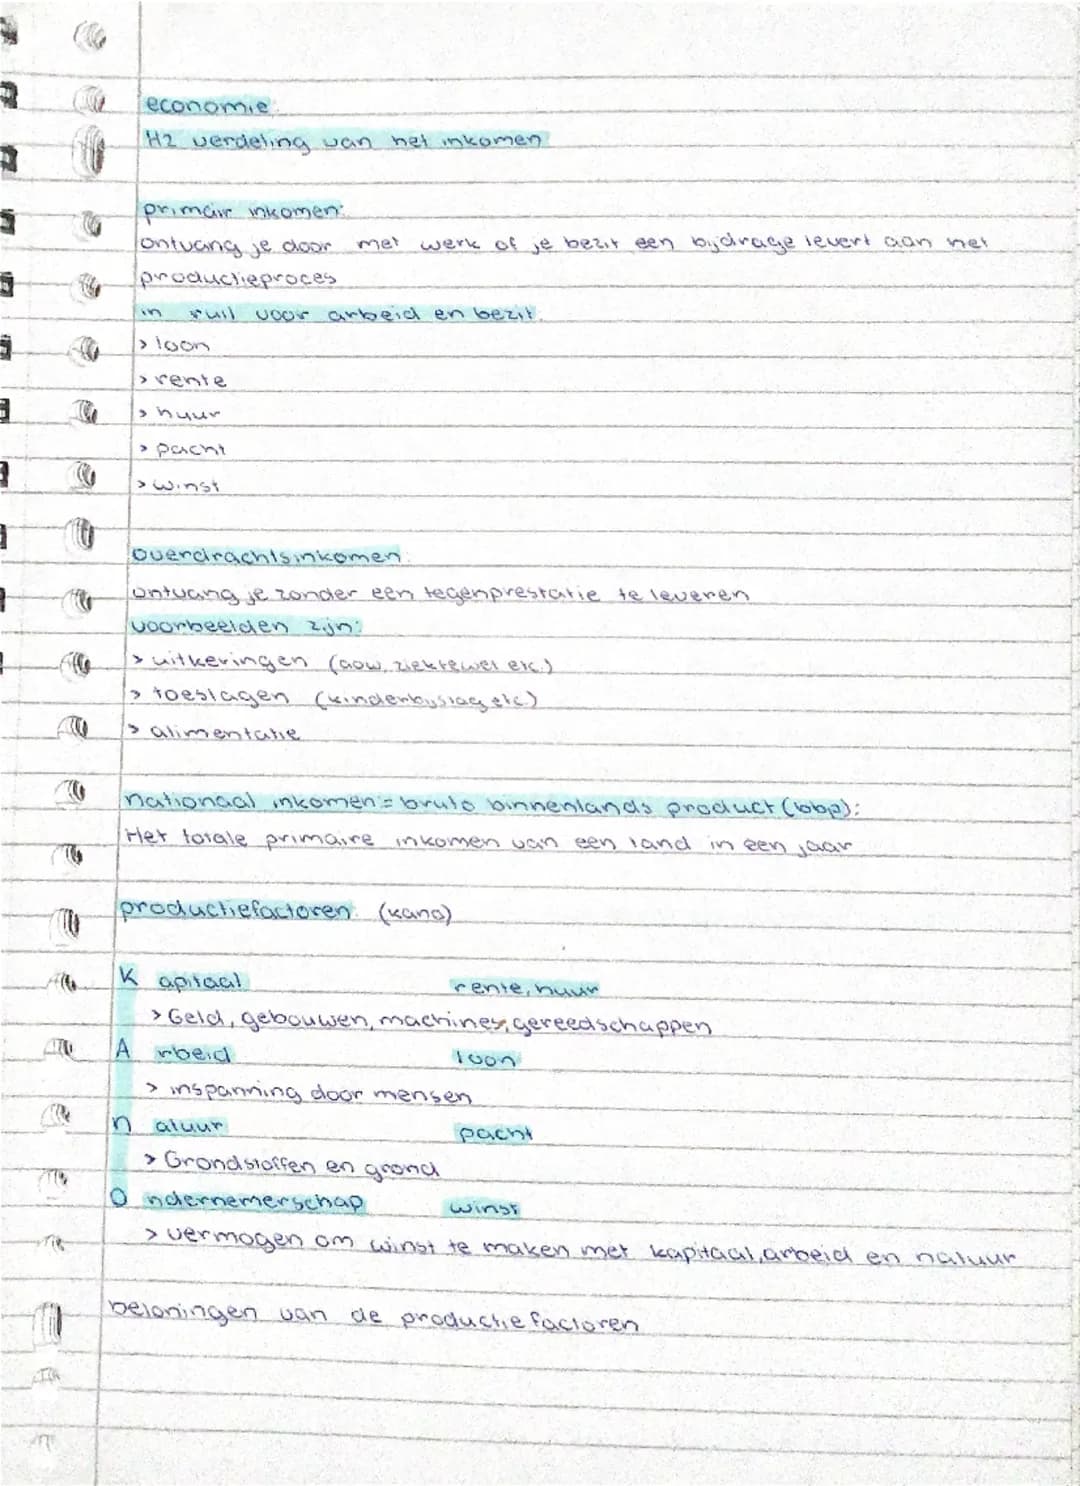 economie:
H2 verdeling van het inkomen
primair inkomen:
ontvang je door met werk of je bezit een bijdrage levert aan het
productieproces
in ruil voor arbeid en bezit.
> loon
> rente
> huur
> pacht
> winst
overdrachtsinkomen:
ontvang je zonder een tegenprestatie te leveren
voorbeelden zijn:
> uitkeringen (aow, ziektewet etc.)
> toeslagen (kinderbijslag etc)
> alimentatie
nationaal inkomen = bruto binnenlands product (bbp):
Het totale primaire inkomen van een land in een jaar
productiefactoren: (kano)
K apitaal rente, huur
> Geld, gebouwen, machines, gereedschappen
A rbeid loon
> inspanning door mensen
n atuur pacht
> Grondstoffen en grond
O ndernemerschap winst
> vermogen om winst te maken met kapitaal, arbeid en natuur
beloningen van de productiefactoren